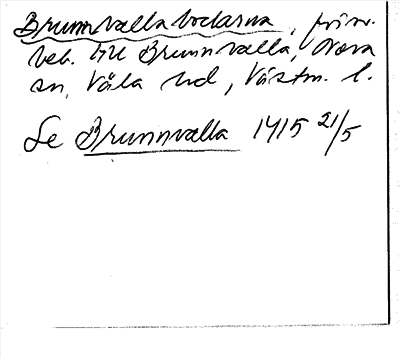 Brunnvalla bodarna, försv.
beb. till Brunnvalla, Nora
sn, Våla hd, Västm. l.
Se Brunnvalla 1415 21/5